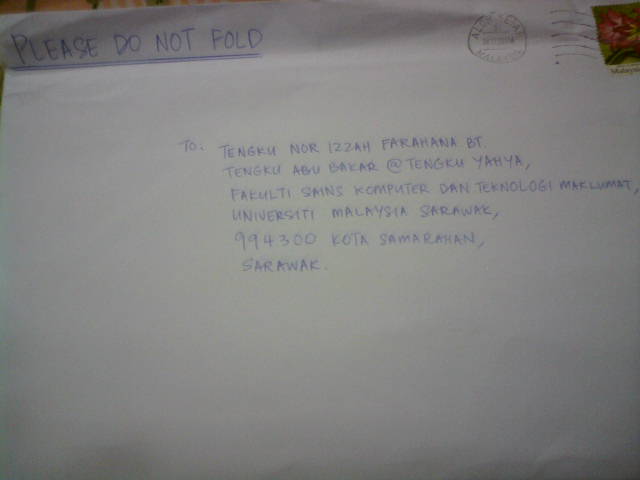 PLEASE DO NOT FOLD
MALAYSIA
Malaysia
TO: TENGKU NOR IZZAH FARAHANA BT.
TENGKU ABU BAKAR @ TENGKU YAHYA,
FAKULTI SAINS KOMPUTER DAN TEKNOLOGI MAKLUMAT,
UNIVERSITI MALAYSIA SARAWAK,
994300 KOTA SAMARAHAN,
SARAWAK.